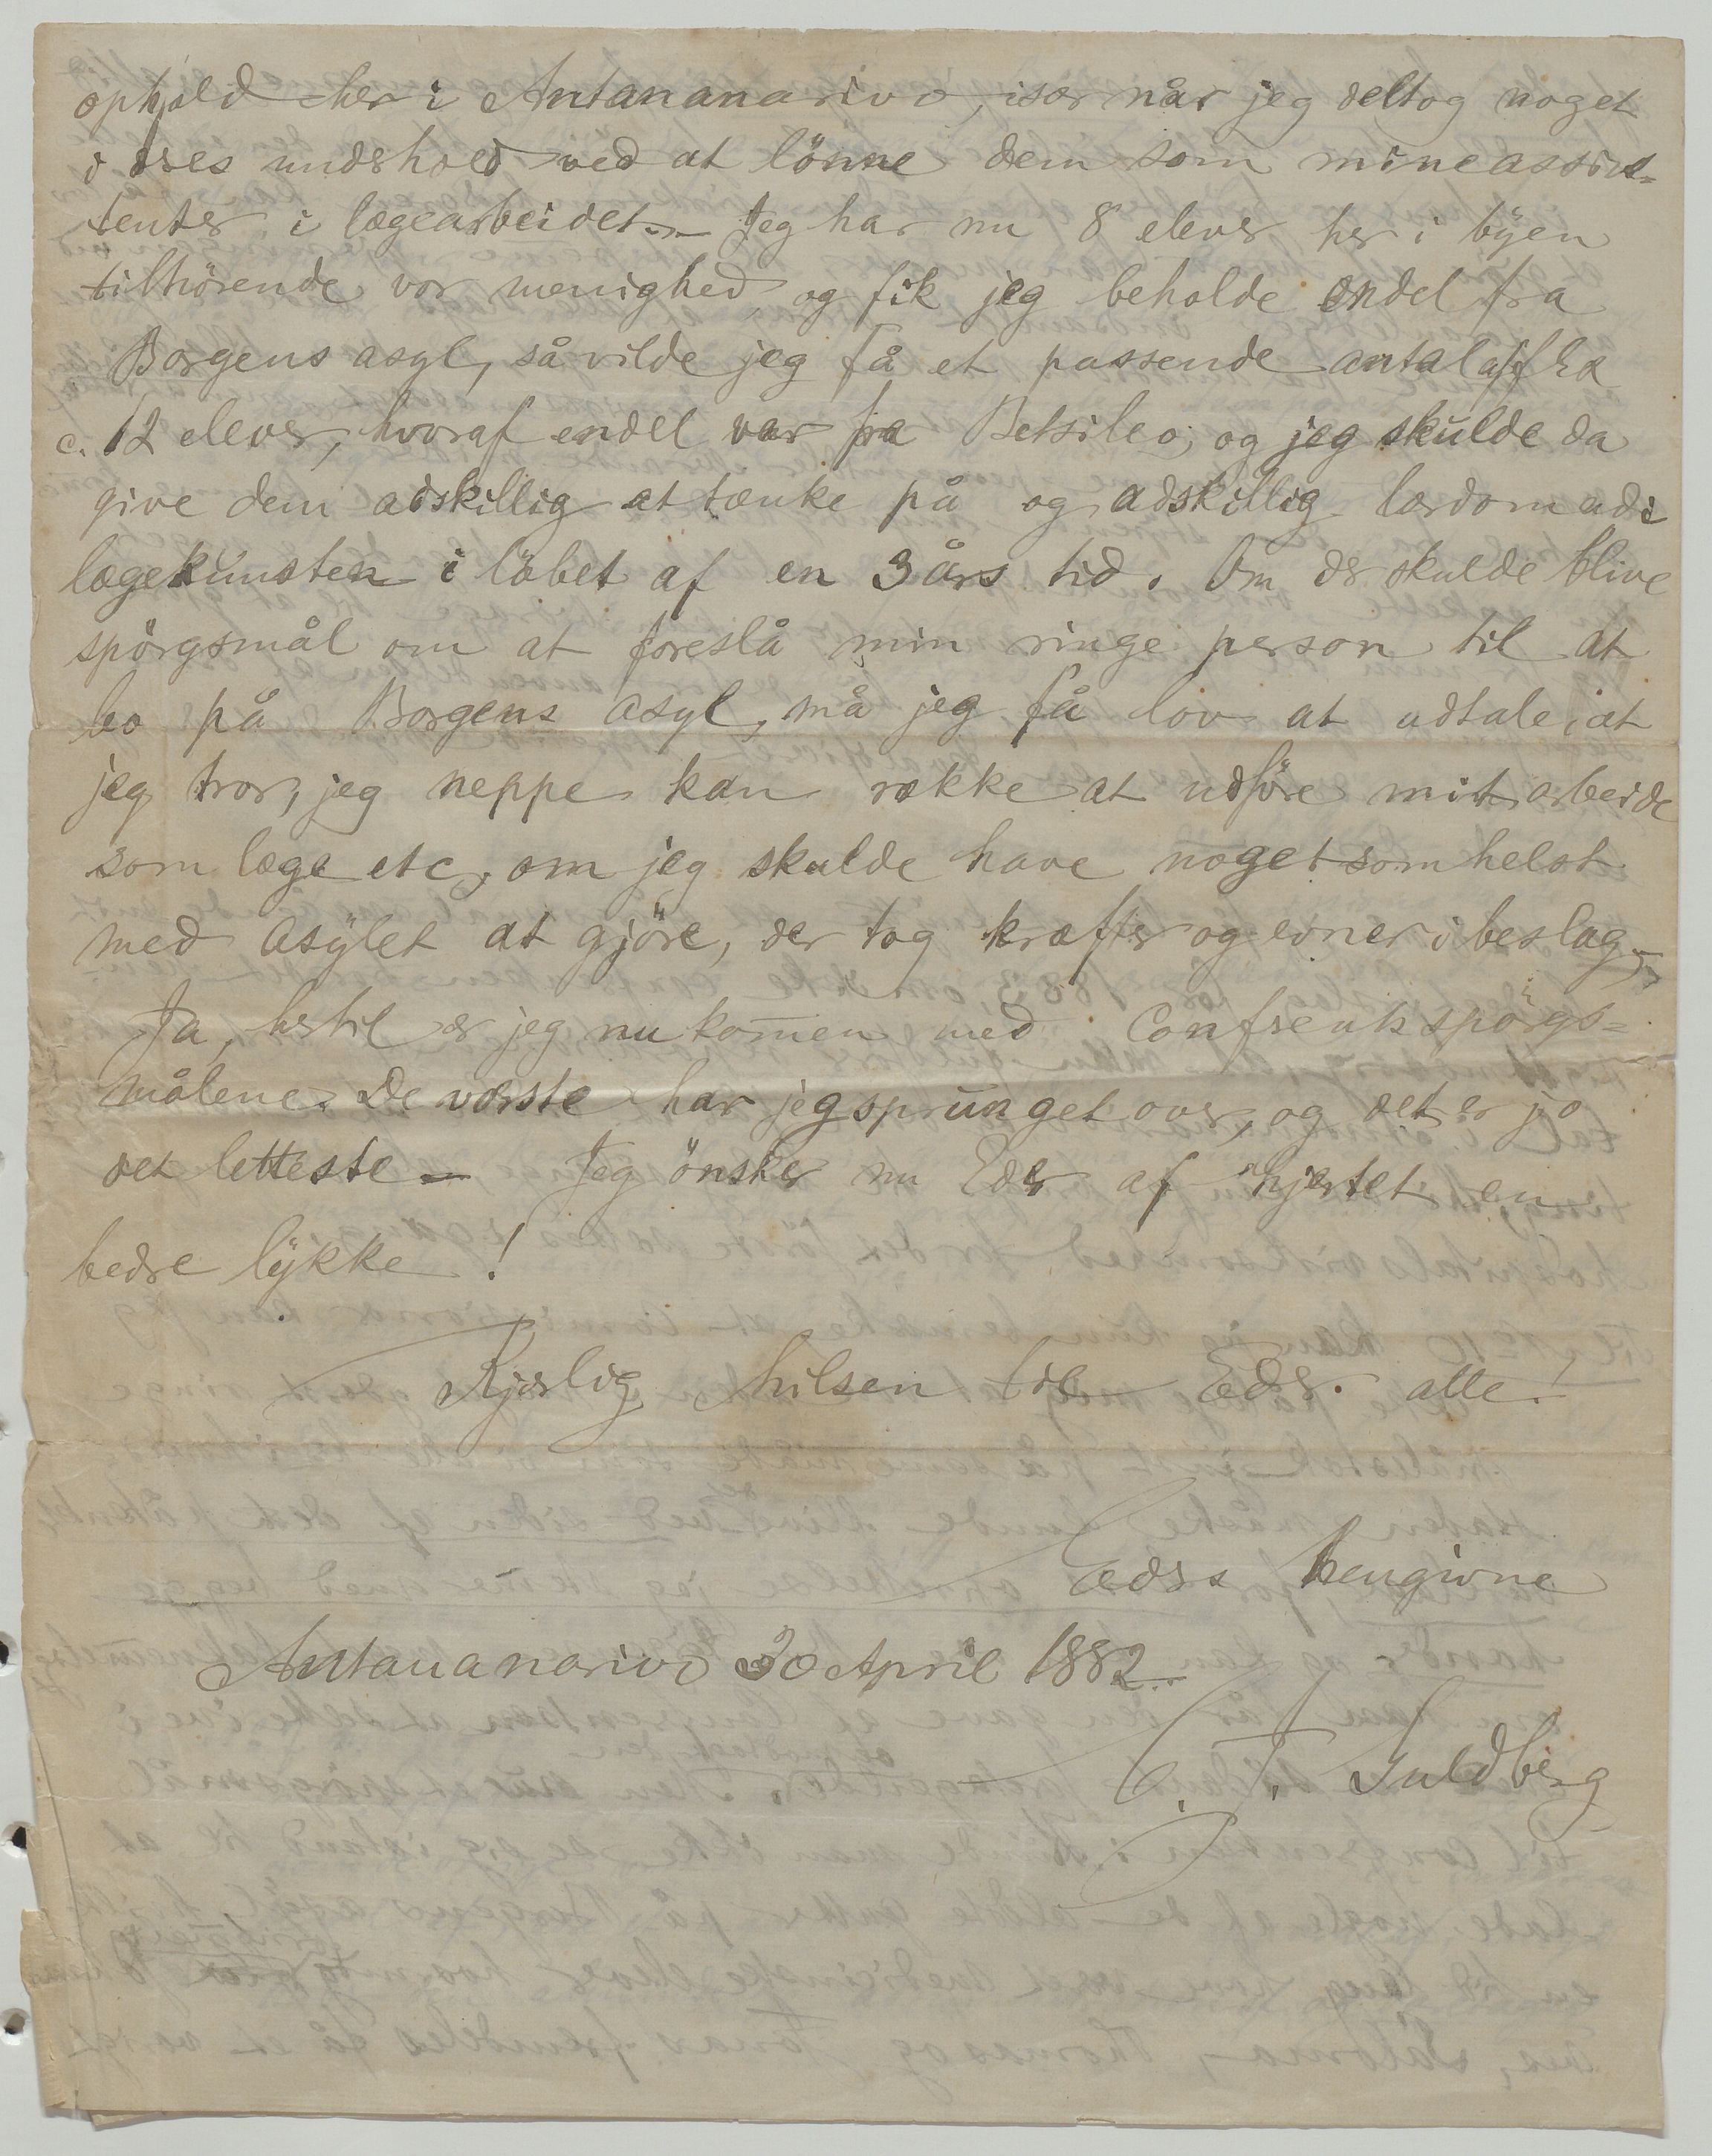 ophold her i Antananarivo, især når jeg deltog noget
i deres underhold ved at lönne dem som mine assis=
tenter i lægearbeidet. – Jeg har nu 8 elever her i byen
tilhörende vor menighed og fik jeg beholde endel fra
Borgens asyl, så vilde jeg få et passende antal af
c. 12 elever, hvoraf endel var fra Betsileo, og jeg skulde da
give dem adskillig at tænke på og adskillig lærdom ud i
lægekunsten i löbet af en 3 års tid. Om der skulde blive
spörgsmål om at foreslå min ringe person til at
bo på Borgens asyl, må jeg få lov at udtale, at
jeg tror, jeg neppe kan række at udföre mit arbeide
som læge etc, om jeg skulde have noget somhelst
med asylet at gjöre, der tog kræfter og evner i beslag. –
Ja, hertil er jeg nu kom̄en med Confrentsspörgs=
målene. De værste har jeg sprunget over, og det er jo
det letteste – Jeg önsker nu Eder af hjertet en
bedre lykke!
Kjærlig hilsen til Eder alle!
Eders hengivne
Antananarivo 30 April 1882.
C. J. Guldberg